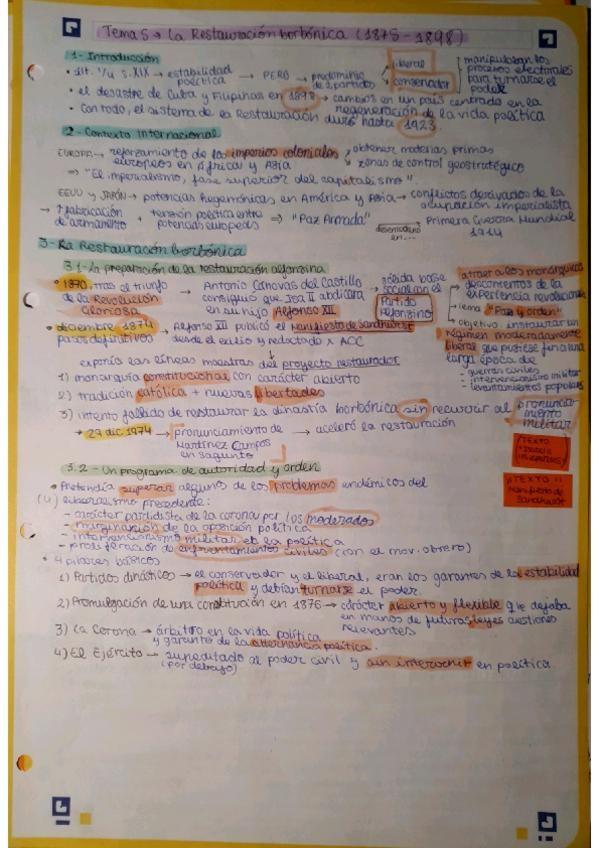 Tema 5 → La Restauración borbónica (1875 - 1898)
1- Introducción
• últ. 1/4 s.XIX → estabilidad política → PERO → predominio de 2 partidos
liberal
conservador
manipulaban los procesos electorales para turnarse el poder
• el desastre de Cuba y Filipinas en 1898 → cambios en un país centrado en la regeneración de la vida política
• Con todo, el sistema de la Restauración duró hasta 1923
2 - Contexto Internacional
EUROPA → reforzamiento de los imperios coloniales europeos en África y Asia
obtener materias primas
zonas de control geostratégico
⇒ "El imperialismo, fase superior del capitalismo".
EEUU y JAPÓN → potencias hegemónicas en América y Asia → conflictos derivados de la ocupación imperialista
→ ↑ fabricación de armamento + tensión política entre potencias europeas ⇒ "Paz Armada" desembocaron en... Primera Guerra Mundial 1914
3- La Restauración borbónica
3.1- La preparación de la restauración alfonsina
• 1870, tras el triunfo de la Revolución Gloriosa → Antonio Cánovas del Castillo consiguió que Isa II abdicara en su hijo Alfonso XII → sólida base social con el Partido Alfonsino
atraer a los monárquicos descontentos de la experiencia revolucionaria
lema "Paz y orden"
objetivo: instaurar un régimen moderadamente liberal que pusiese fin a una larga época de
- guerras civiles
- intervencionismo militar
- levantamientos populares
• diciembre 1874 pasos definitivos → Alfonso XII publicó el Manifiesto de Sandhurst desde el exilio y redactado x ACC
exponía las líneas maestras del proyecto restaurador
1) monarquía constitucional con carácter abierto
2) tradición católica + nuevas libertades
3) intento fallido de restaurar la dinastía borbónica sin recurrir al pronunciamiento militar
→ 29 dic 1974 → pronunciamiento de Martínez Campos en Sagunto → aceleró la restauración
TEXTO
TEXTO 11
Manifiesto de Sandhurst
3.2 - Un programa de autoridad y orden
• Pretendía superar alguno de los problemas endémicos del
(4) liberalismo precedente:
- carácter partidista de la corona por los moderados
- marginación de la oposición política
- intervencionismo militar en la política
- proliferación de enfrentamientos civiles (con el mov. obrero)
• 4 pilares básicos
1) Partidos dinásticos → el conservador y el liberal, eran los garantes de la estabilidad política y debían turnarse el poder.
2) Promulgación de una constitución en 1876 → carácter abierto y flexible que dejaba en manos de futuras leyes cuestiones relevantes
3) La Corona → árbitro en la vida política y garante de la alternancia política.
4) El Ejército → supeditado al poder civil y sin intervenir en política.
(por debajo)